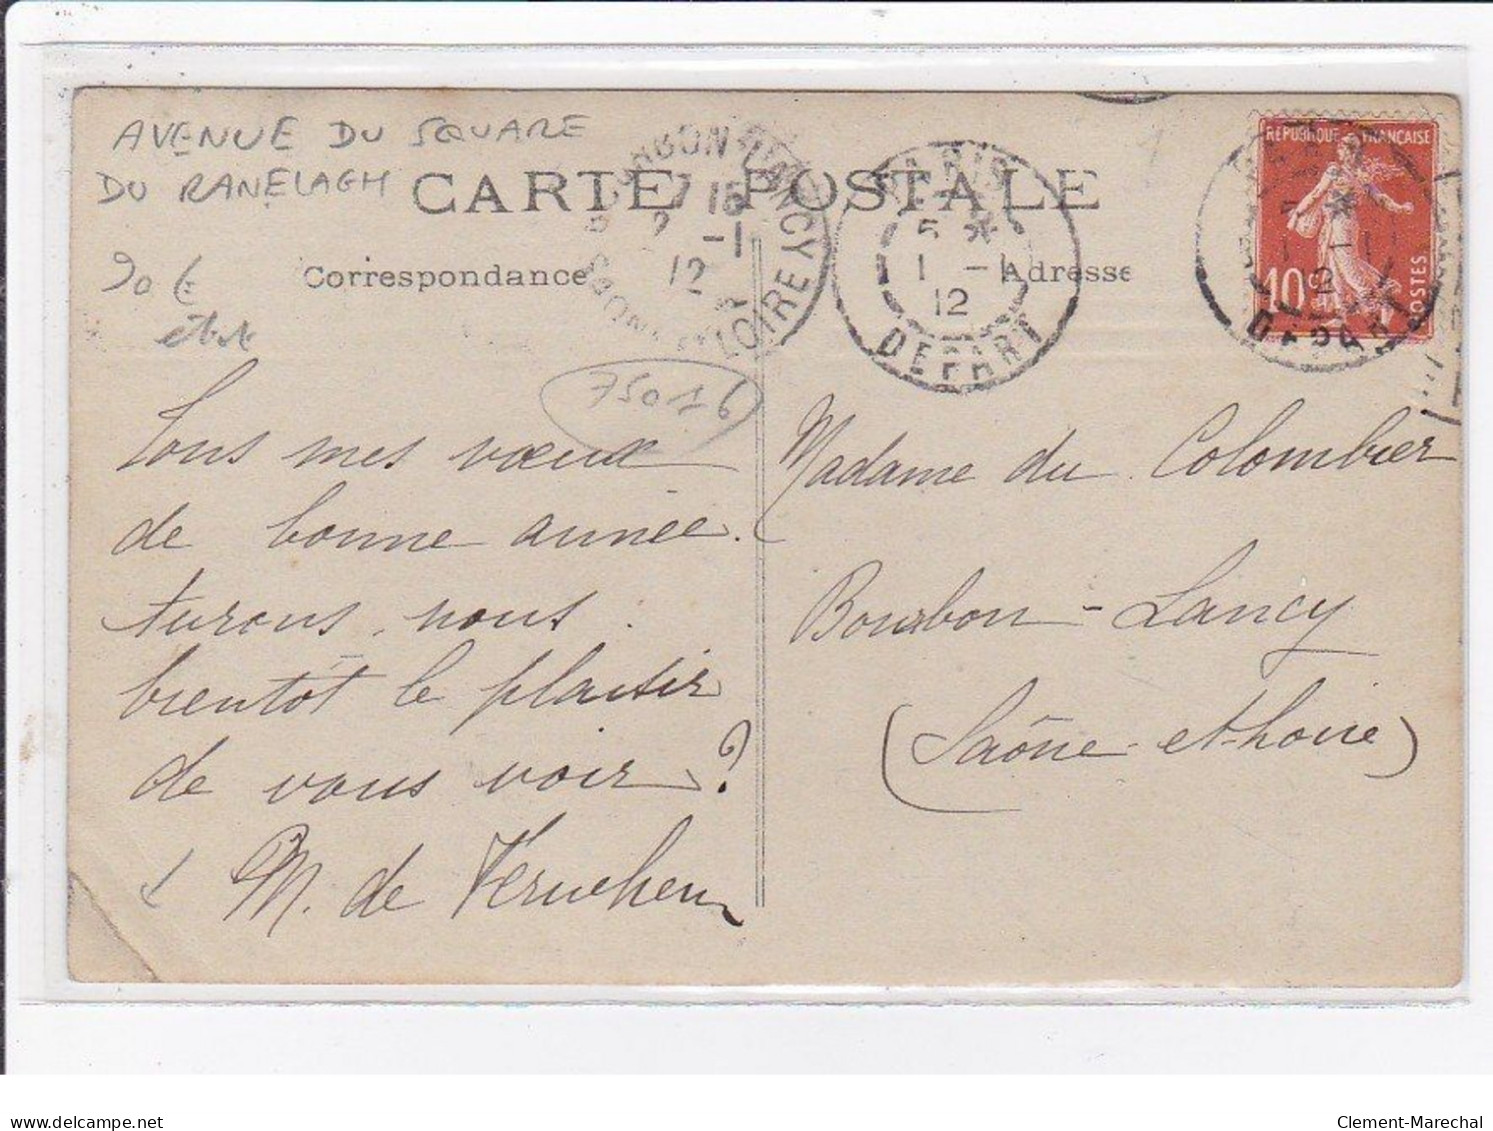 AVENUE DU SQUARE
DU RANELAGH
CARTE POSTALE
Correspondance
Adresse
90 €
75016
BOURBON-LANCY
7 15
2 -1
12
LOIRE
PARIS
5 *
1 -1
12
DEPART
REPUBLIQUE FRANÇAISE
10c
POSTES
5 *
1 -1
12
DEPART
Tous mes vœux
de bonne année.
Aurons, nous
bientôt le plaisir
de vous voir ?
M. de
Madame du Colombier
Bourbon-Lancy
(Saône-et-Loire)
Clement-Marechal
delcampe.net